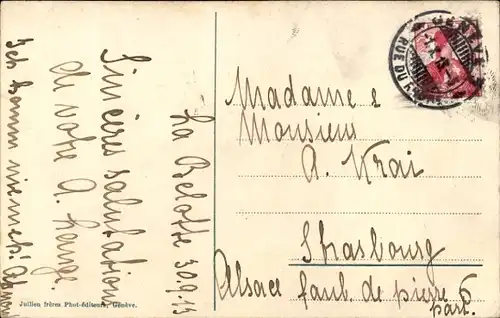 La Belotte 30.9.13
Sincères salutations
de votre A. Lange.
Ich komm
Madame &
Monsieur
A. Krai
Strasbourg
Alsace faub. de pierre 6
part.
Jullien frères Phot-éditeurs, Genève.
RUE DU